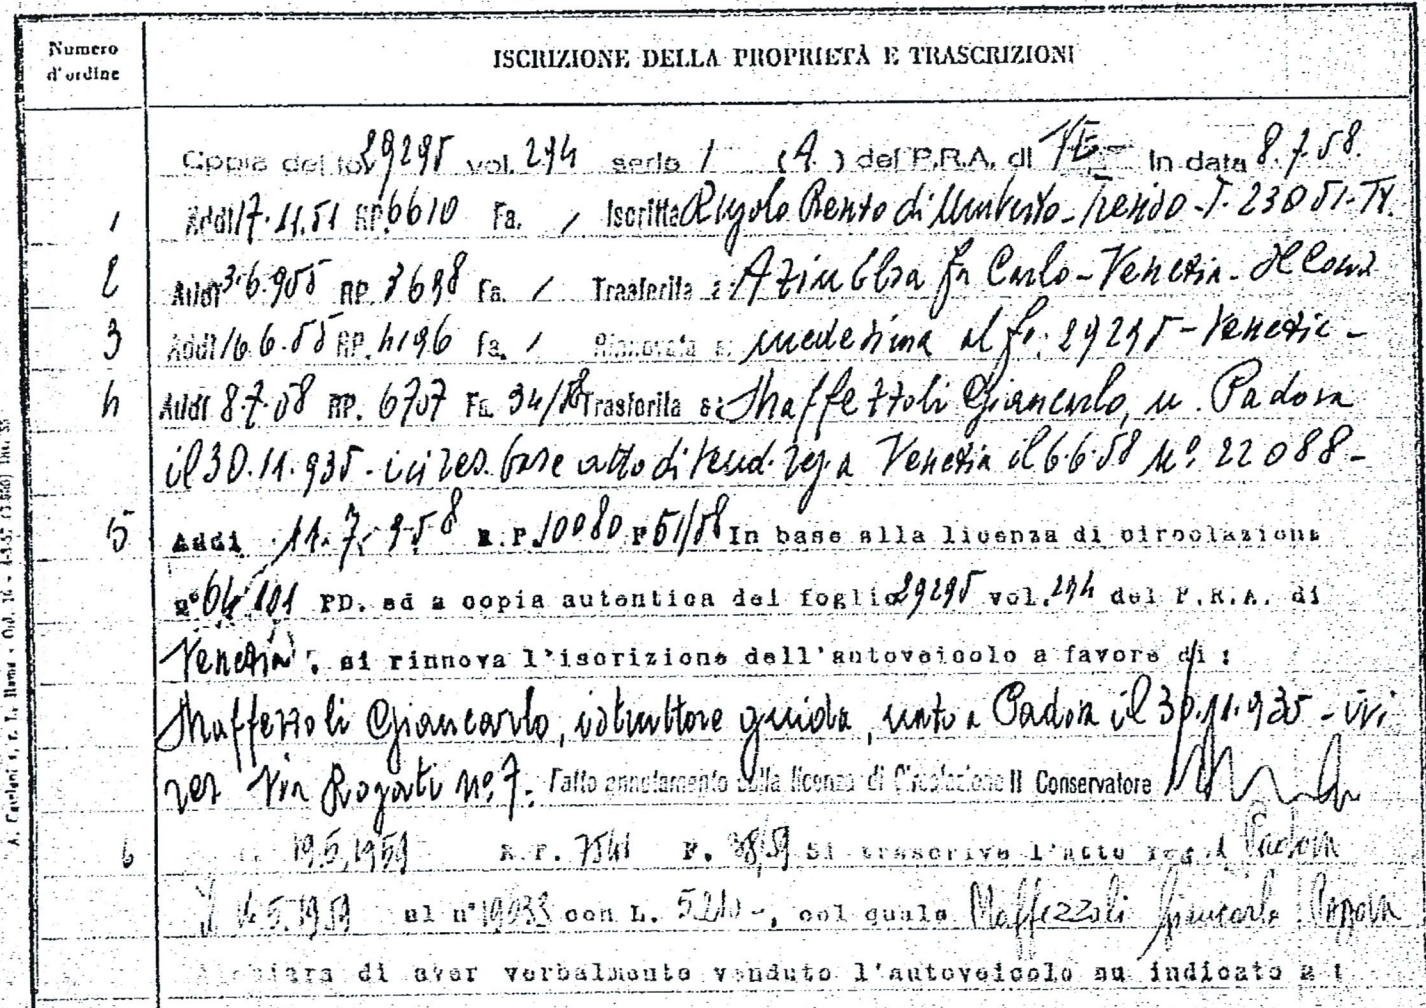 Numero
d'ordine
ISCRIZIONE DELLA PROPRIETÀ E TRASCRIZIONI
Copia del fo. 29295 vol. 294 serie 1 (A.) del P.R.A. di VE In data 8.7.58.
1 Addì 17.11.51 RP. 6610 Fa. / Iscritta di Umberto - T. 23051-TV.
2 Addì 3.6.955 RP. 3698 Fa. / Trasferita a: fu Carlo - Venezia -
3 Addì 16.6.55 RP. 4196 Fa. / Rinnovata a: medesima al fo. 29295 - Venezia -
4 Addì 8.7.58 RP. 6707 Fa. 34/58 Trasferita a: Maffezzoli Giancarlo, n. Padova
il 30.11.935 - ivi res. base atto di vend. reg. a Venezia il 6.6.58 Nº. 22088 -
5 Addì 11.7.958 R.P. 10080 F 51/58 In base alla licenza di circolazione
nº 64101 PD. ed a copia autentica del foglio 29295 vol. 294 del P.R.A. di
Venezia. si rinnova l'iscrizione dell'autoveicolo a favore di :
Maffezzoli Giancarlo, istruttore guida, nato a Padova il 30.11.935 - ivi
res Via Rogati nº. 7. Fatto annotamento sulla licenza di Circolazione Il Conservatore
6 19.5.1959 R.P. 7541 F. 38/59 Si trascrive l'atto reg. a Padova
il 5.1959 al nº con L. , col quale Maffezzoli Giancarlo Padova
dichiara di aver verbalmente venduto l'autoveicolo su indicato a :
A. Carloni s. r. l., Roma - Ord. 14